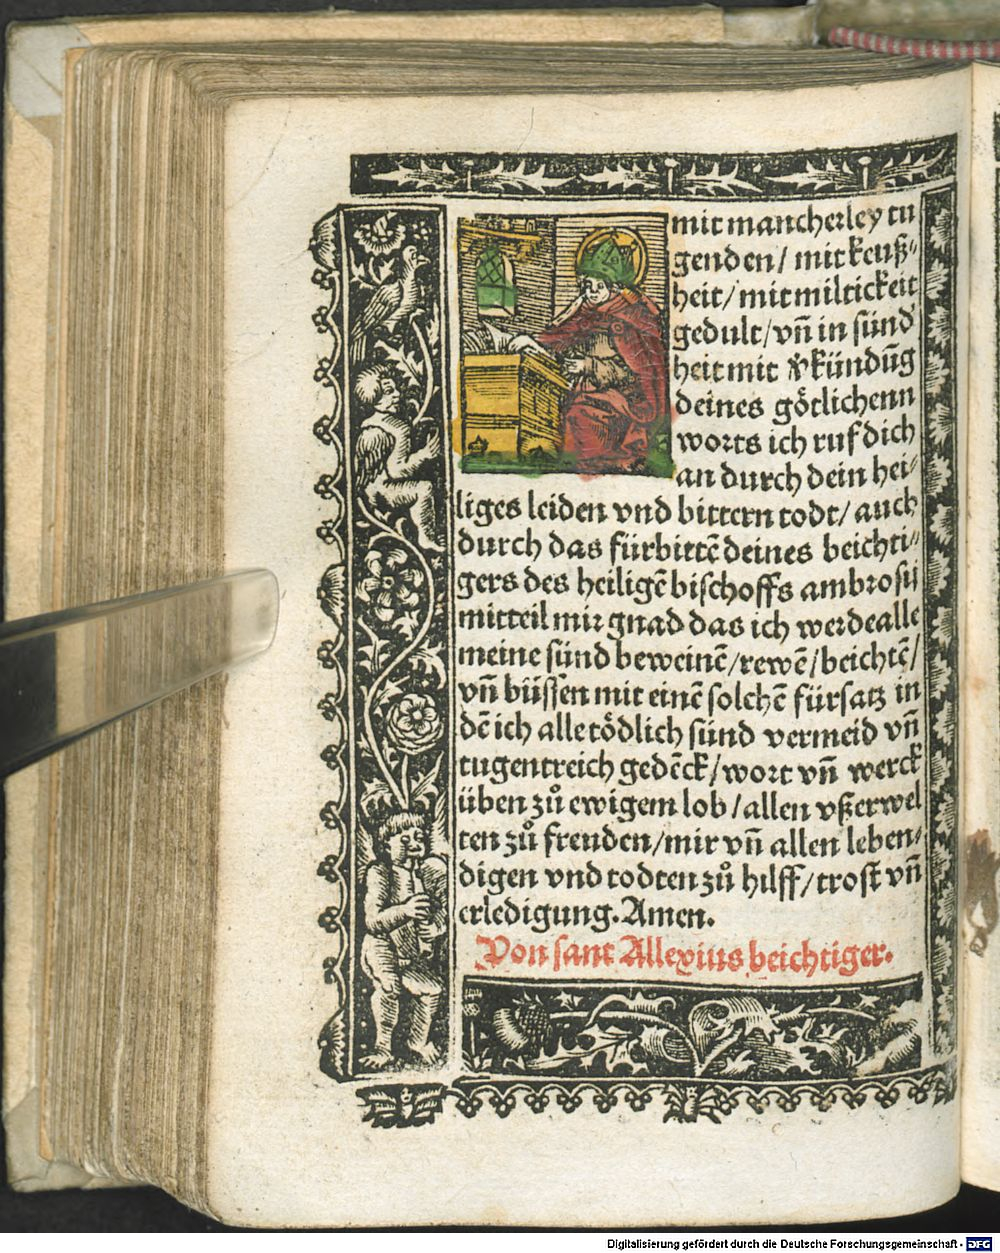 mit mancherley tu
genden/ mit keuß⸗
heit/ mit miltickeit
gedult/ vn̄ in sünd
heit mit v̓kündūg
deines götlichenn
worts ich ruf dich
an durch dein hei⸗
liges leiden vnd bittern todt/ auch
durch das fürbittē deines beichti⸗
gers des heiligē bischoffs ambrosij
mitteil mir gnad das ich werde alle
meine sünd beweinē/ rewē/ beichtē/
vn̄ büssen mit einē solchē fürsatz in
dē ich alle tödlich sünd vermeid vn̄
tugentreich gedēck/ wort vn̄ werck
üben zů ewigem lob/ allen vßerwel
ten zů freuden/ mir vn̄ allen leben⸗
digen vnd todten zů hilff/ trost vn̄
erledigung. Amen.
Von sant Allexius beichtiger.
Digitalisierung gefördert durch die Deutsche Forschungsgemeinschaft - DFG